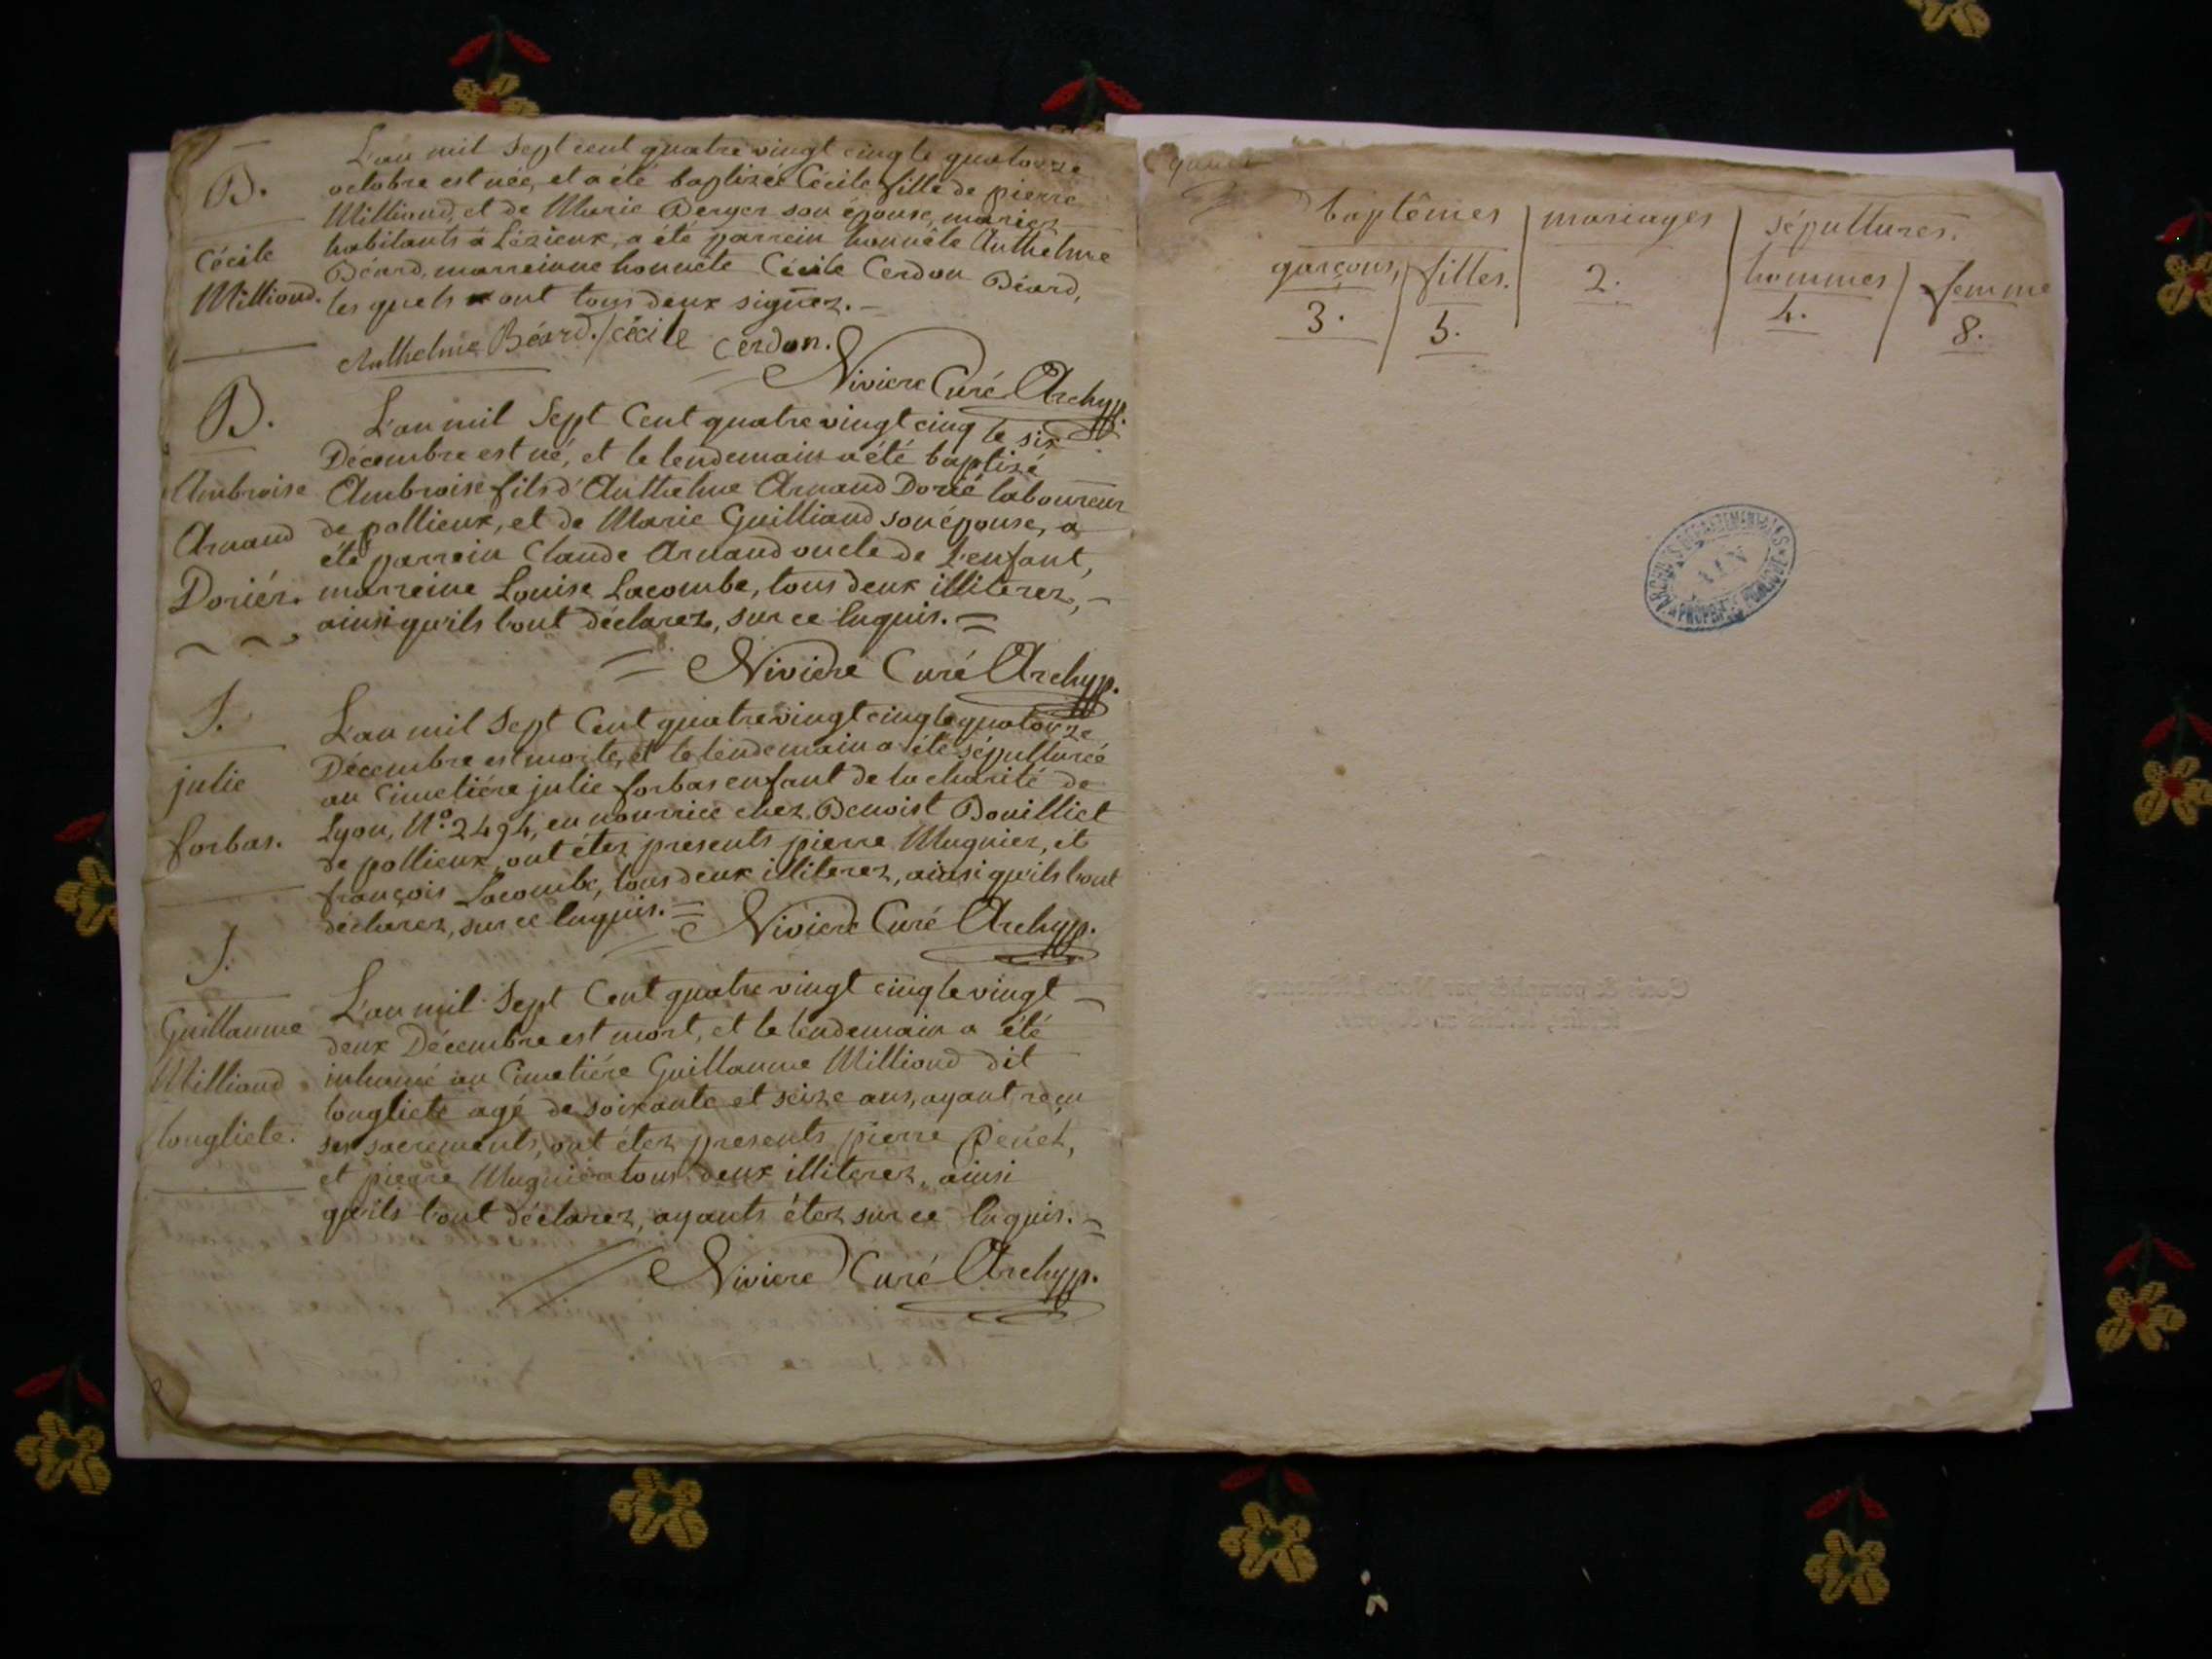 B.
Cécile
Milliand.
L'an mil Sept cent quatre vingt cinq le quatorze
octobre est née, et a été baptizée Cécile fille de pierre
Milliand, et de Marie Berger son épouse, mariez
habitants à Lézieux, a été parrein honnête Anthelme
Béard, marreinne honnête Cécile Cerdon Béard,
les quels ont tous deux signez.
Anthelme Béard. / cécile cerdon.
Niviere Curé Archyp.
B.
Ambroise
Arnaud
Doriér.
L'an mil Sept Cent quatre vingt cinq le six
Décembre est né, et le lendemain a été baptizé
Ambroise fils d'Anthelme Arnaud Dorié laboureur
de pollieux, et de Marie Guilliand son épouse, a
été parrein Claude Arnaud oncle de L'enfant,
marreine Louise Lacombe, tous deux illiterez,
ainsi qu'ils l'ont déclarez, sur ce enquis. =
= Niviere Curé Archyp.
S.
julie
forbas.
L'an mil Sept Cent quatre vingt cinq le quatorze
Décembre est morte, et le lendemain a été sépulturée
au Cimetiére julie forbas enfant de la charité de
Lyon, N.º 2494, en nourrice chez Benoist Bouilliet
de pollieux, ont étez presents pierre Mugnier, et
françois Lacombe, tous deux illiterez, ainsi qu'ils l'ont
déclarez, sur ce enquis. = Niviere Curé Archyp.
S.
Guillaume
Milliand
longliete.
L'an mil Sept Cent quatre vingt cinq le vingt
deux Décembre est mort, et le lendemain a été
inhumé au Cimetiére Guillaume Milliand dit
longliete agé de soixante et seize ans, ayant reçu
ses sacrements, ont étez presents pierre
et pierre Mugnier tous deux illiterez, ainsi
qu'ils l'ont déclarez, ayants étez sur ce enquis.
Niviere Curé Archyp.
baptêmes / mariages / sépultures.
garçons, / filles. / 2. / hommes / femme
3. / 5. / 4. / 8.
ARCHIVES DÉPARTEMENTALES
AIN
PROPRIÉTÉ PUBLIQUE